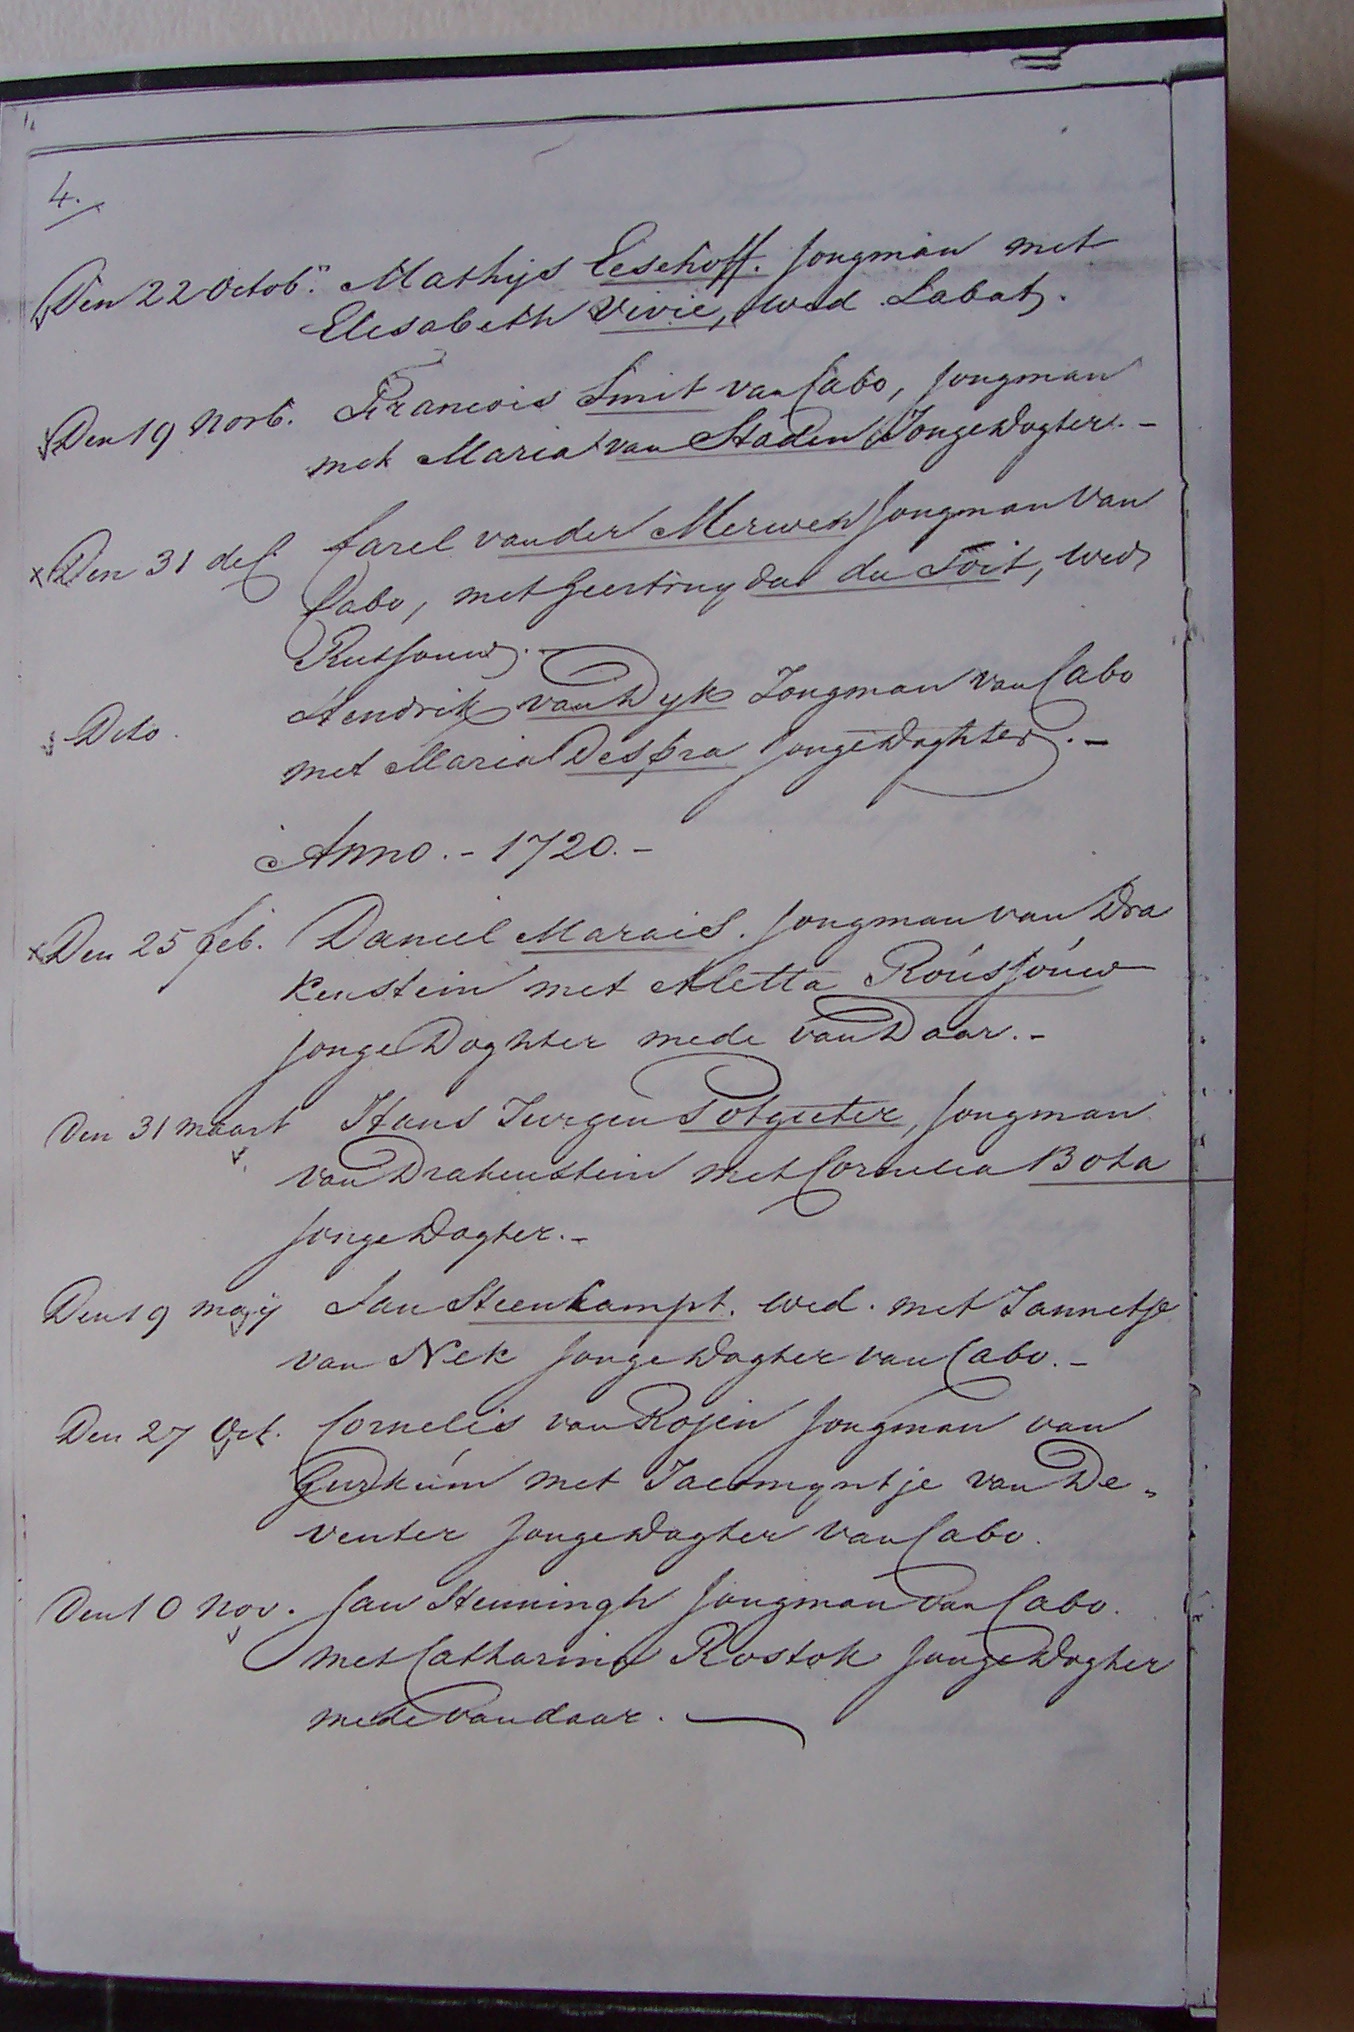 4.
Den 22 Octobr. Mathijs Eeschoff. Jongman met
Elisabeth Vivie, wed Labat.
Den 19 Novb. Francois Smit van Cabo, Jongman
met Maria van Staden JongeDogter. -
Den 31 dec Carel vander Merweh Jongman Van
Cabo, met Geertruyda du Toit, wed
Rutsouw. -
Dito. Hendrik van Dyk Jongman van Cabo
met Maria Despra JongeDoghter. -
Anno. - 1720. -
Den 25 feb. Daniel Marais. Jongman van Dra
kenstein met Aletta Roúsjoúw
jonge Doghter mede van Daar. -
Den 31 maart Hans Jurgen Potgieter, Jongman
van Drakenstein met Cornelia Bota
Jonge Dogter. -
Den 19 maÿ Jan Steenkampt. wed. met Jannetje
van Nek Jonge Dogter van Cabo. -
Den 27 Oct. Cornelis van Rojen Jongman van
Gurkúm met Jacomyntje van De„
venter Jonge Dogter van Cabo.
Den 10 Nov. Jan Henningh Jongman van Cabo.
met Catharina Rostok Jonge Dogter
mede van daar.